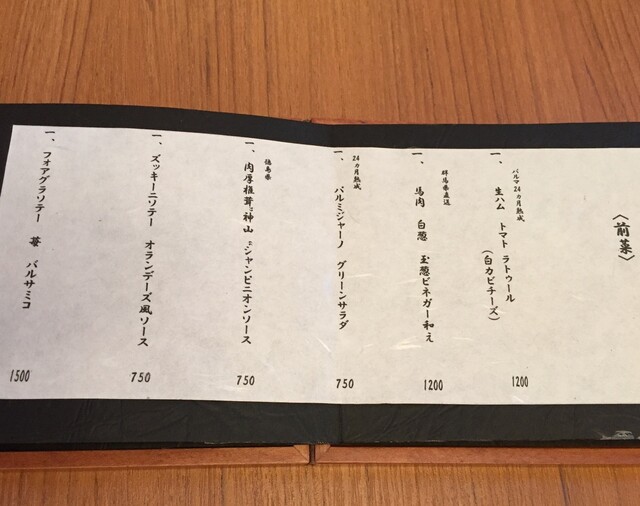 〈前菜〉
パルマ24カ月熟成
一、生ハム トマト ラトゥール
(白カビチーズ)
1200
群馬県直送
一、馬肉 白葱 玉葱ビネガー和え
1200
24カ月熟成
一、パルミジャーノ グリーンサラダ
750
徳島県
一、肉厚椎茸"神山"シャンピニオンソース
750
一、ズッキーニソテー オランデーズ風ソース
750
一、フォアグラソテー 苺 バルサミコ
1500